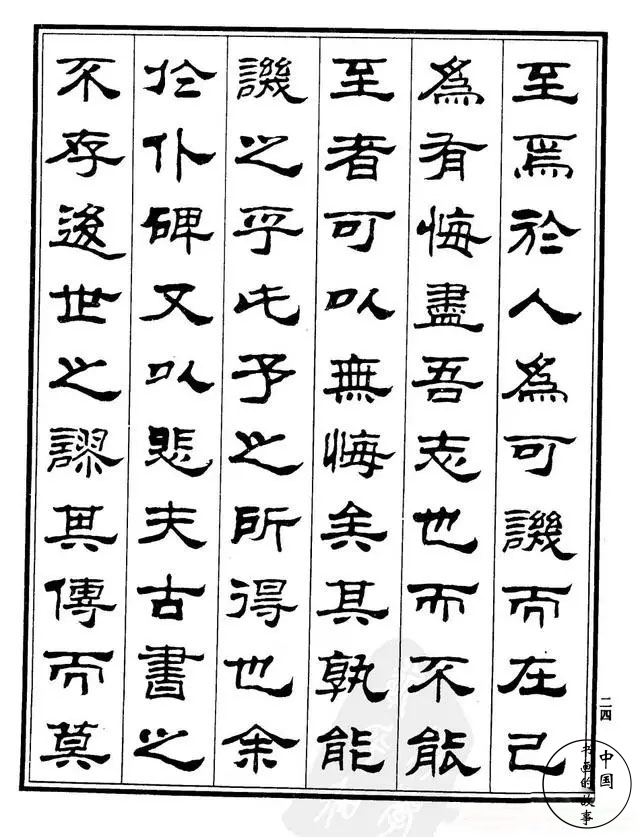 至焉於人為可譏而在己
為有悔盡吾志也而不能
至者可以無悔矣其孰能
譏之乎此予之所得也余
於仆碑又以悲夫古書之
不存後世之謬其傳而莫
二四
中国
书画的故事